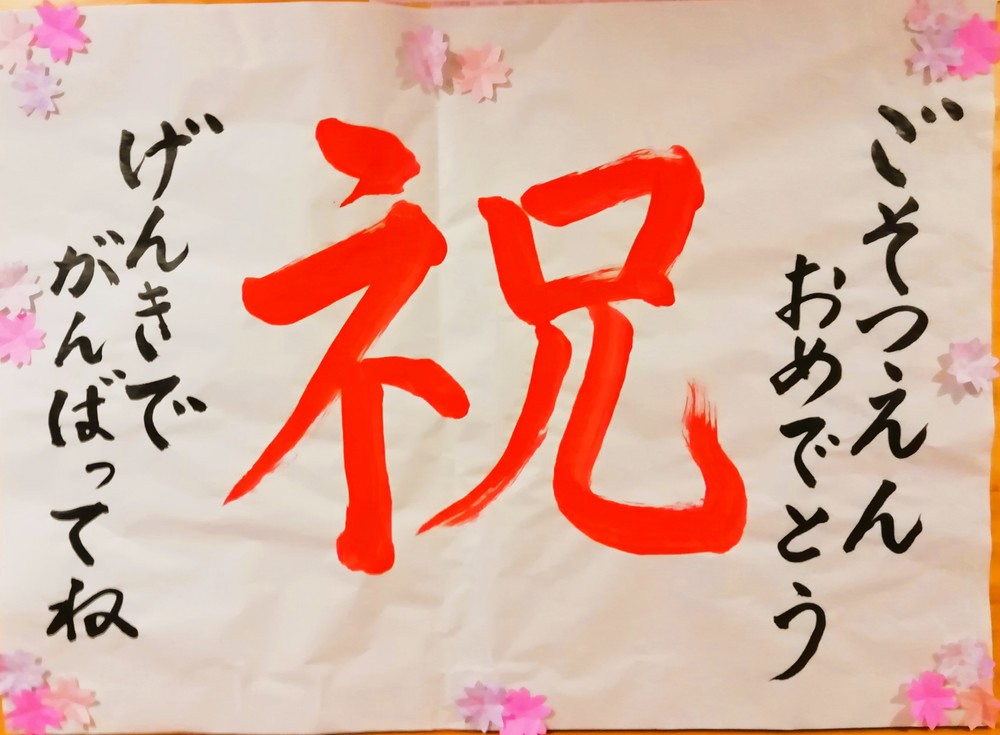 ごそつえん
おめでとう
祝
げんきで
がんばってね